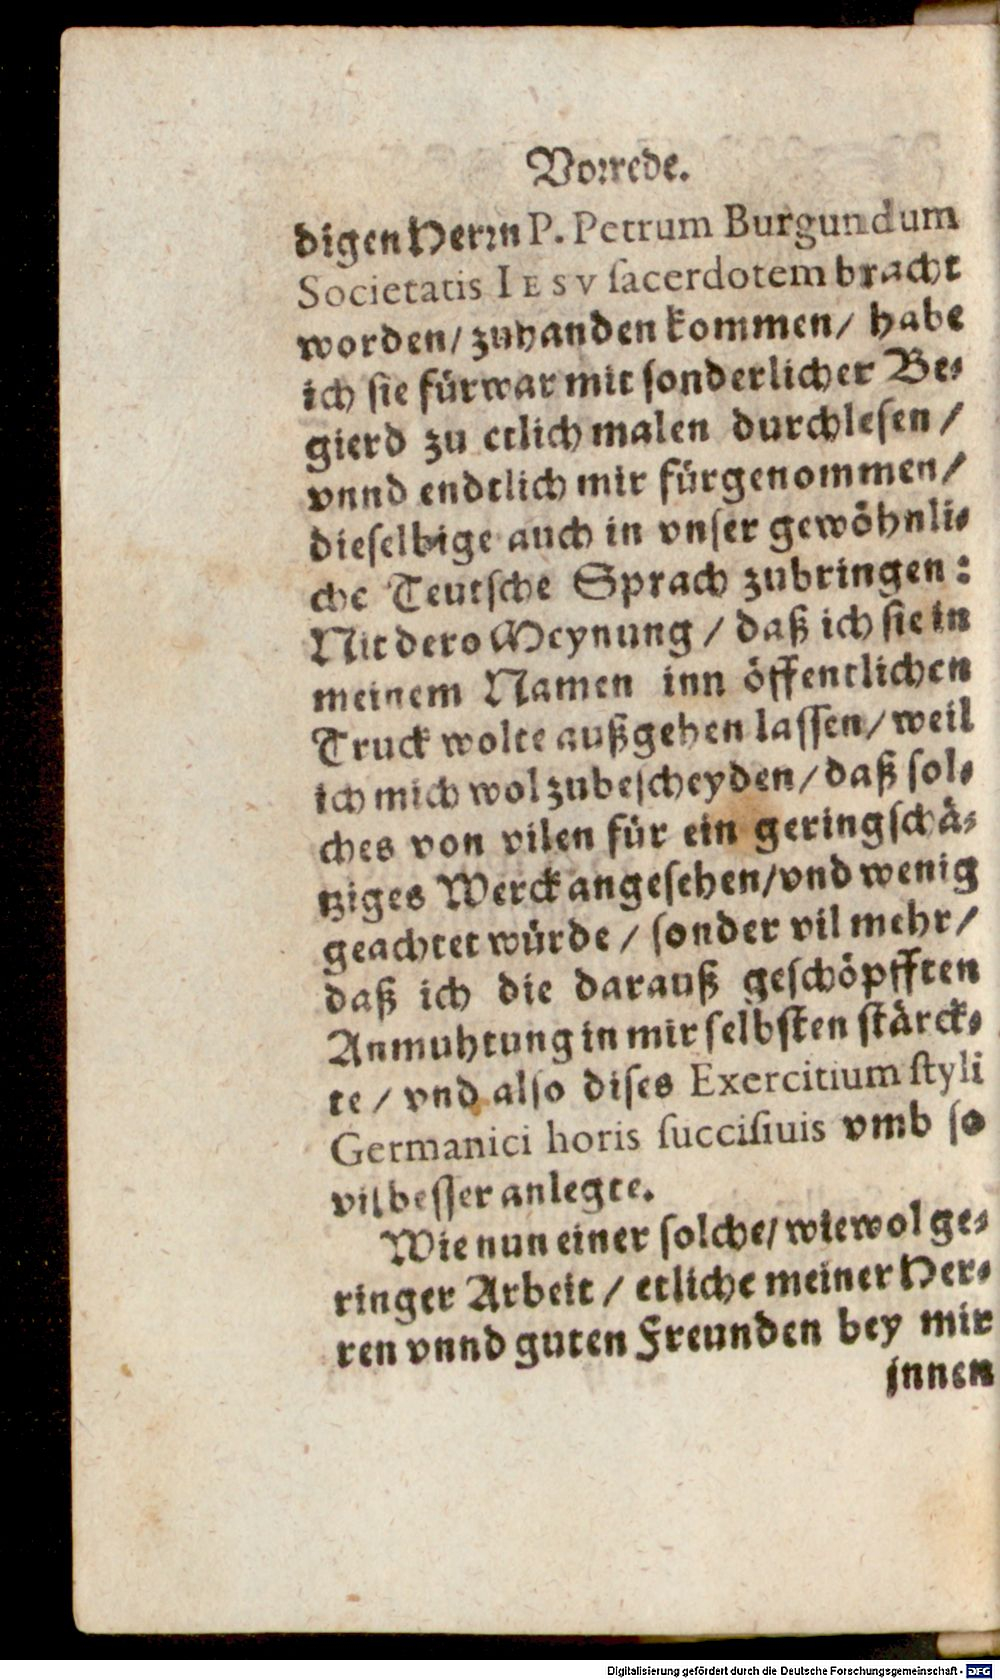 Vorrede.
digen Herrn P. Petrum Burgundum
Societatis IESV ſacerdotem bracht
worden/ zuhanden kommen/ habe
ich ſie fürwar mit ſonderlicher Be⸗
gierd zu etlich malen durchleſen /
vnnd endtlich mir fürgenommen/
dieſelbige auch in vnſer gewöhnli⸗
che Teutſche Sprach zubringen:
Nit dero Meynung / daß ich ſie in
meinem Namen inn öffentlichen
Truck wolte außgehen laſſen/ weil
ich mich wol zubeſcheyden/ daß ſol⸗
ches von vilen für ein geringſchä⸗
tziges Werck angeſehen/ vnd wenig
geachtet würde / ſonder vil mehr/
daß ich die darauß geſchöpfften
Anmuhtung in mir ſelbſten ſtärck⸗
te / vnd alſo diſes Exercitium ſtyli
Germanici horis ſucciſiuis vmb ſo
vil beſſer anlegte.
Wie nun einer ſolche/ wiewol ge⸗
ringer Arbeit / etliche meiner Her⸗
ren vnnd guten Freunden bey mir
jnnen
Digitalisierung gefördert durch die Deutsche Forschungsgemeinschaft - DFG